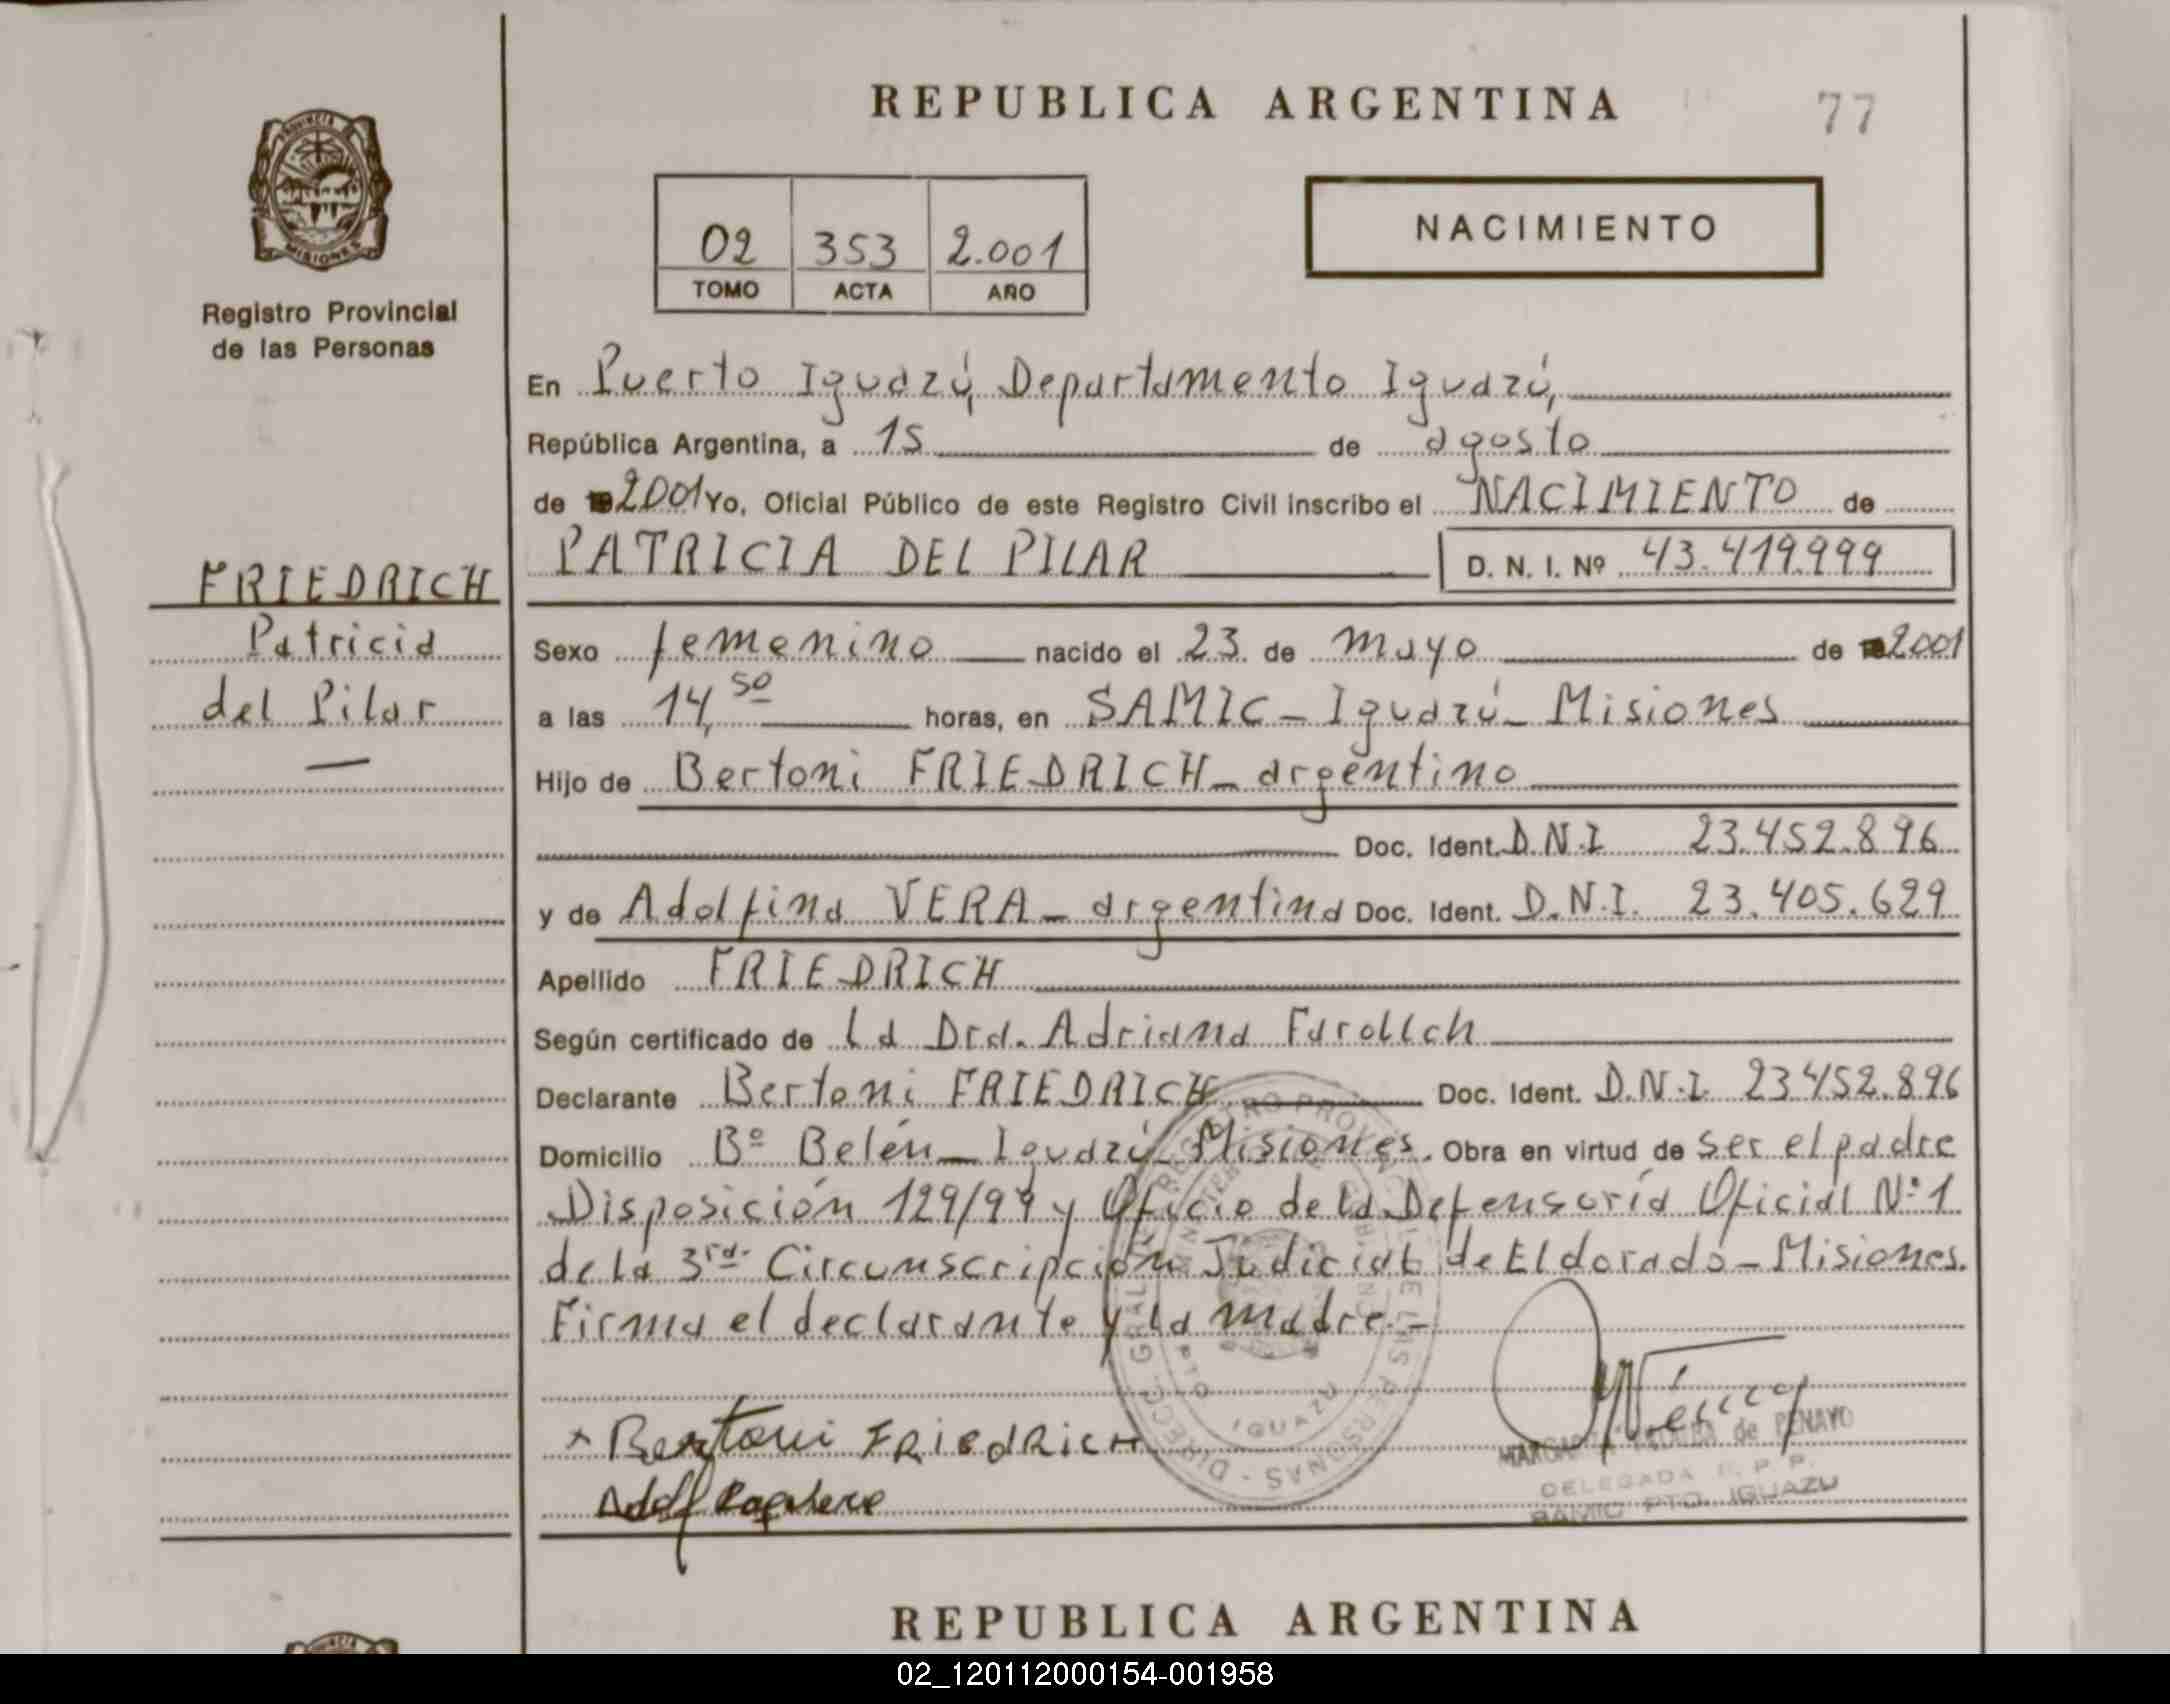 REPUBLICA ARGENTINA
77
PROVINCIA DE
MISIONES
Registro Provincial
de las Personas
02 353 2.001
TOMO ACTA AÑO
NACIMIENTO
En Puerto Iguazú, Departamento Iguazú,
República Argentina, a 15 de agosto
de 2001 Yo, Oficial Público de este Registro Civil inscribo el NACIMIENTO de
PATRICIA DEL PILAR D. N. I. Nº 43.419.999
FRIEDRICH
Patricia
del Pilar
Sexo femenino nacido el 23 de mayo de 2001
a las 14,50 horas, en SAMIC - Iguazú - Misiones
Hijo de Bertoni FRIEDRICH - argentino
Doc. Ident. D.N.I 23.452.896
y de Adolfina VERA - argentina Doc. Ident. D.N.I. 23.405.629
Apellido FRIEDRICH
Según certificado de La Dra. Adriana
Declarante Bertoni FRIEDRICH Doc. Ident. D.N.I. 23.452.896
Domicilio Bº Belén - Iguazú - Misiones. Obra en virtud de ser el padre
Disposición 129/99 y Oficio de la Defensoría Oficial Nº 1
de la 3ra. Circunscripción Judicial de Eldorado - Misiones.
Firma el declarante y la madre.-
x Bertoni FRiedRicH
DIRECC. GRAL. REGISTRO PROVINCIAL DE LAS PERSONAS
DPTO IGUAZU
MARGARITA de PENAYO
DELEGADA R. P. P.
SAMIC PTO. IGUAZU
REPUBLICA ARGENTINA
02_120112000154-001958